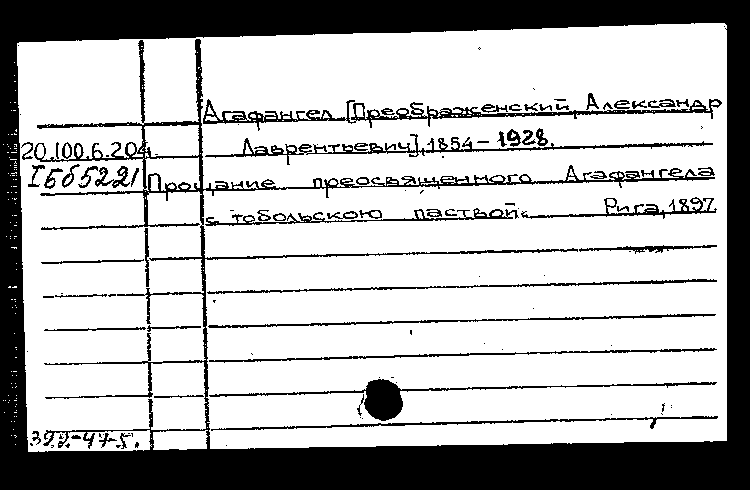 Агафангел [Преображенский, Александр
20.100.6.204 Лаврентьевич], 1854-1928.
IБб5221 Прощание преосвященного Агафангела
с тобольскою паствой. Рига, 1897
392-47-5.